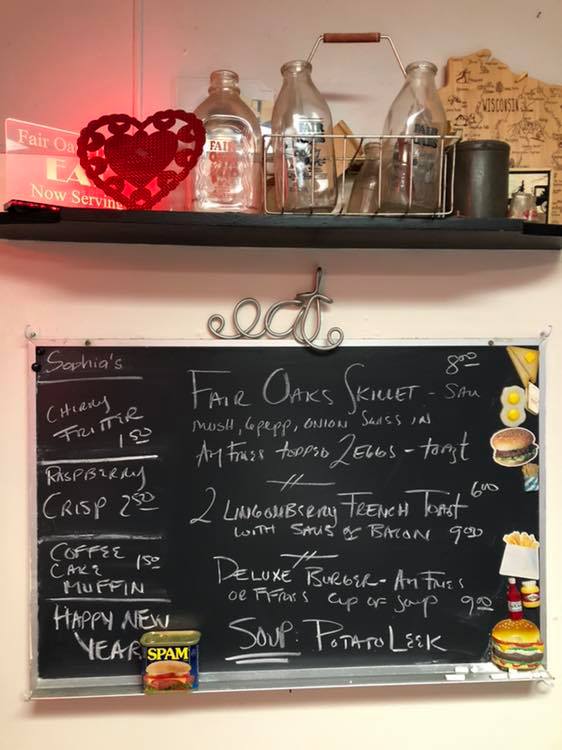 Fair Oa
EA
Now Serving
FAIR
FAIR
FAIR
WISCONSIN
eat
Sophia's
CHERRY
FRITTER
1.50
RASPBERRY
CRISP 2.50
COFFEE
CAKE 1.50
MUFFIN
HAPPY NEW
YEAR
SPAM
8.00
FAIR OAKS SKILLET - SAU
MUSH, GPEPP, ONION SWISS IN
AM FRIES TOPPED 2 EGGS - TOAST
2 LINGONBERRY FRENCH TOAST 6.00
WITH SAUS OR BACON 9.00
DELUXE BURGER - AM FRIES
OR F FRIES CUP OF SOUP 9.00
SOUP: POTATO LEEK